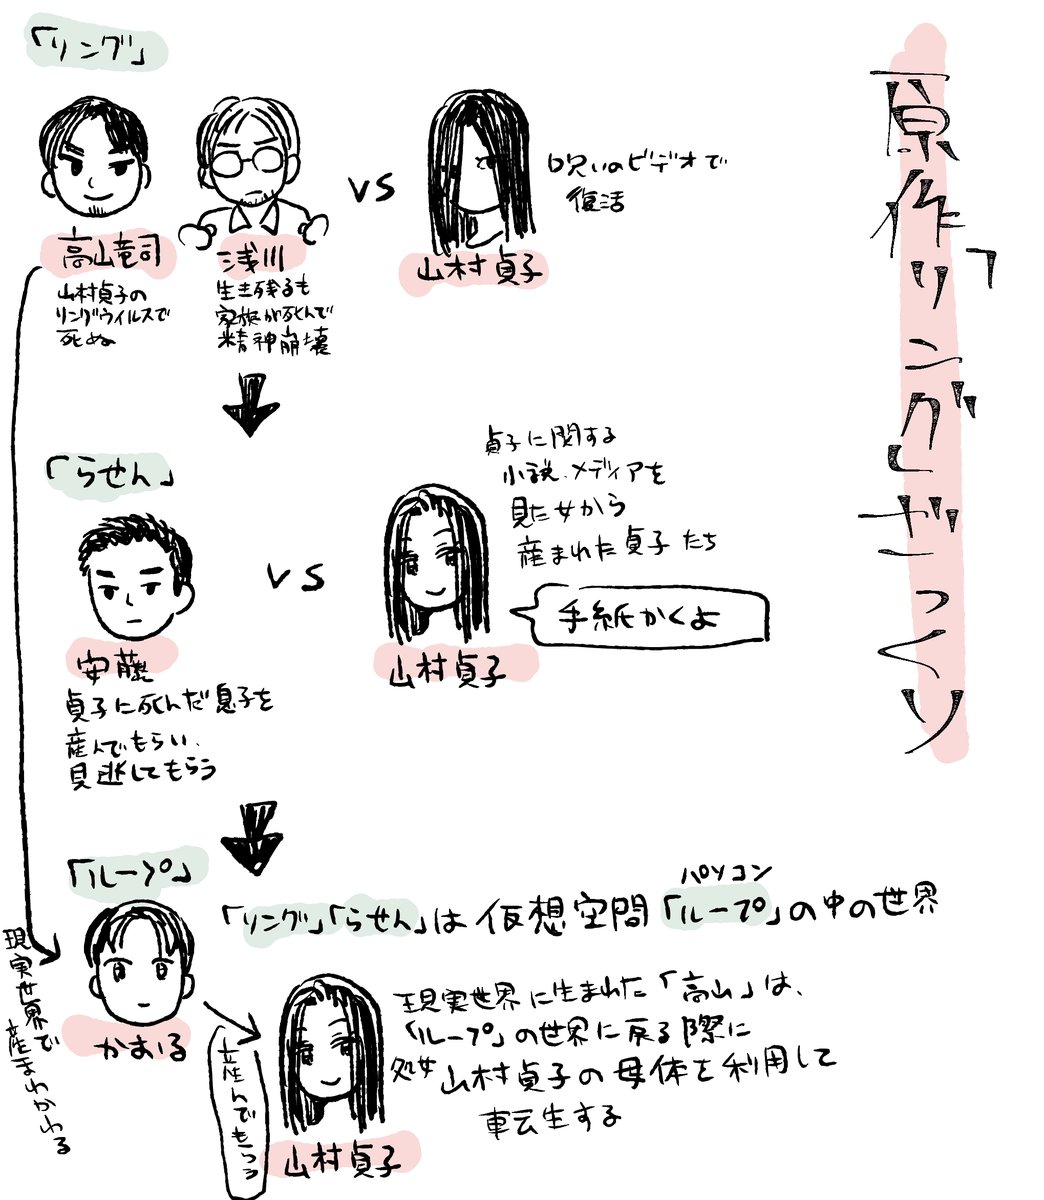 原作「リング」ざっくり
「リング」
高山竜司
山村貞子の
リングウイルスで
死ぬ
浅川
生き残るも
家族が死んで
精神崩壊
vs
山村貞子
呪いのビデオで
復活
「らせん」
安藤
貞子に死んだ息子を
産んでもらい、
見逃してもらう
vs
山村貞子
貞子に関する
小説、メディアを
見た女から
産まれた貞子たち
手紙かくよ
「ループ」
現実世界で
産まれかわる
かおる
「リング」「らせん」は仮想空間「ループ」の中の世界
パソコン
産んでもらう
山村貞子
現実世界に生まれた「高山」は、
「ループ」の世界に戻る際に
処女 山村貞子の母体を利用して
転生する